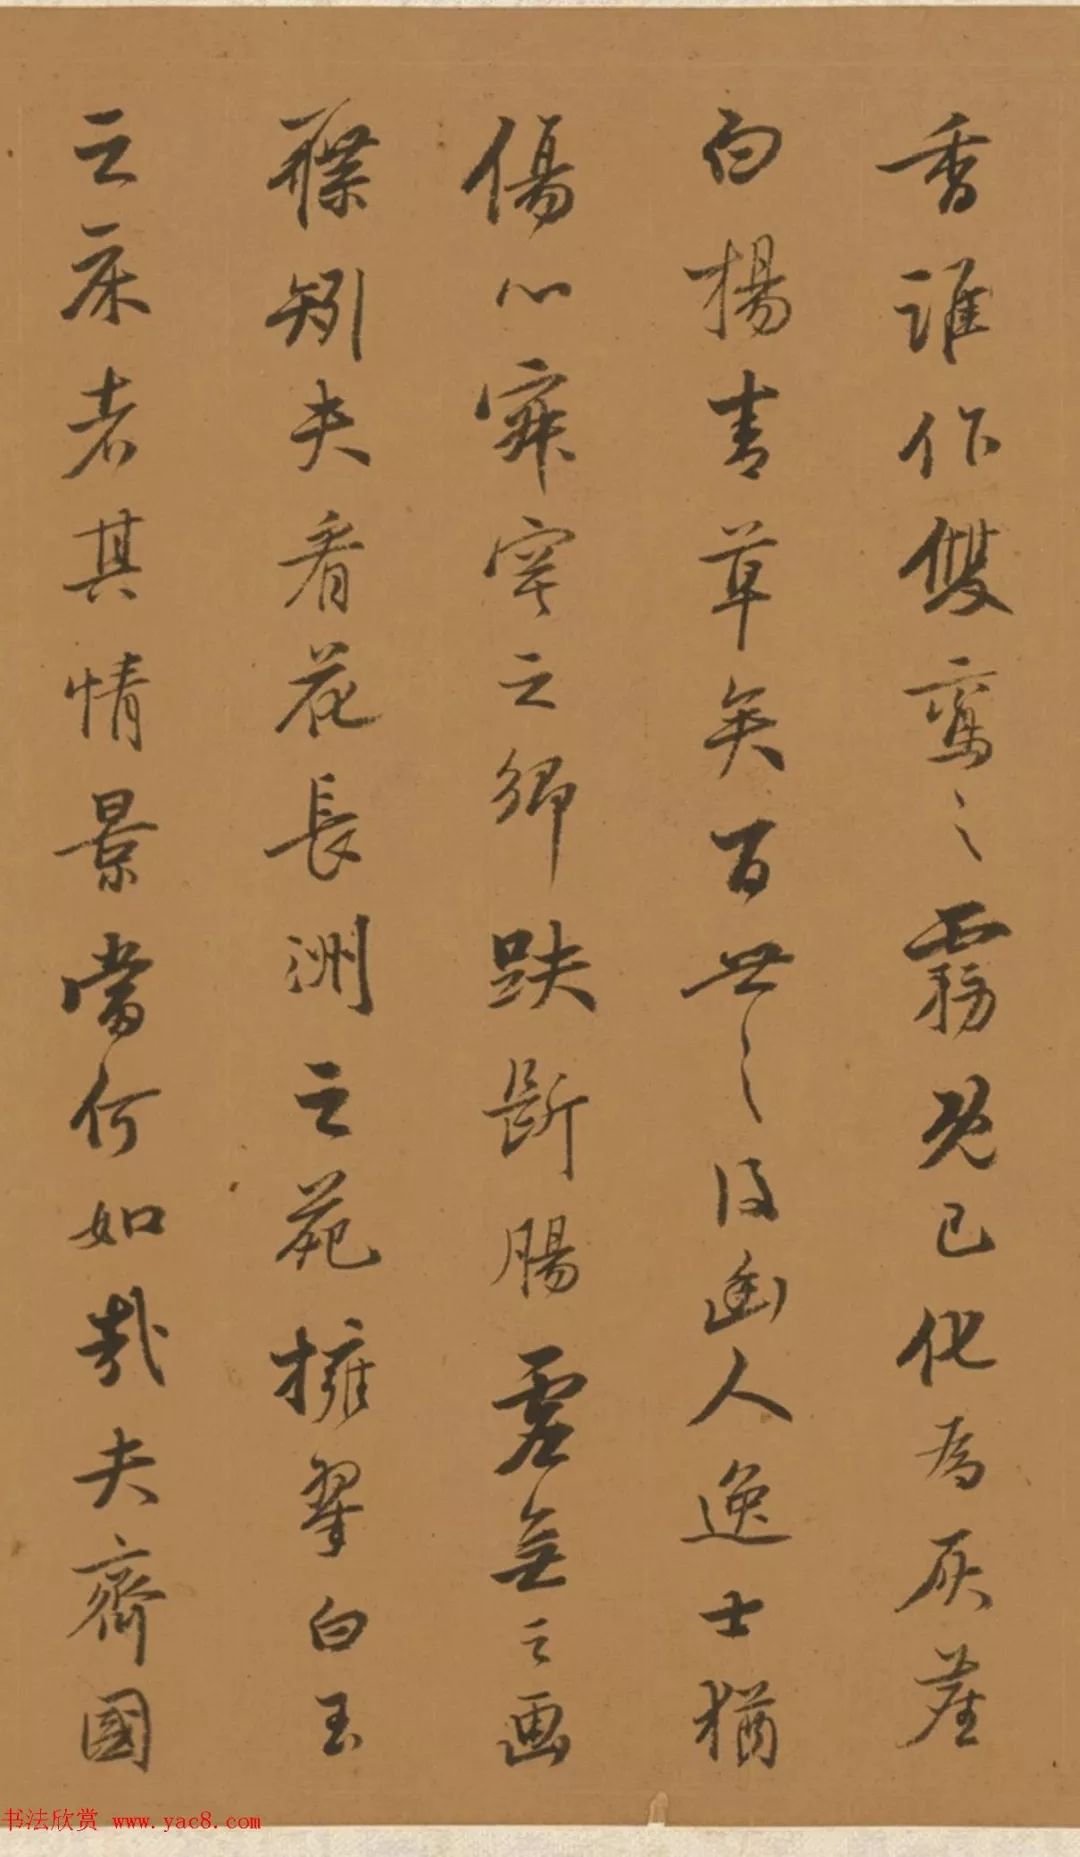 香誰作雙鸞之霧既已化為灰塵
白楊青草矣百世之後幽人逸士猶
傷心寐寃之卿跌斷腸虛無之画
牒矧夫看花長洲之苑擁翠白玉
之床者其情景當何如哉夫齊國
书法欣赏 www.yac8.com